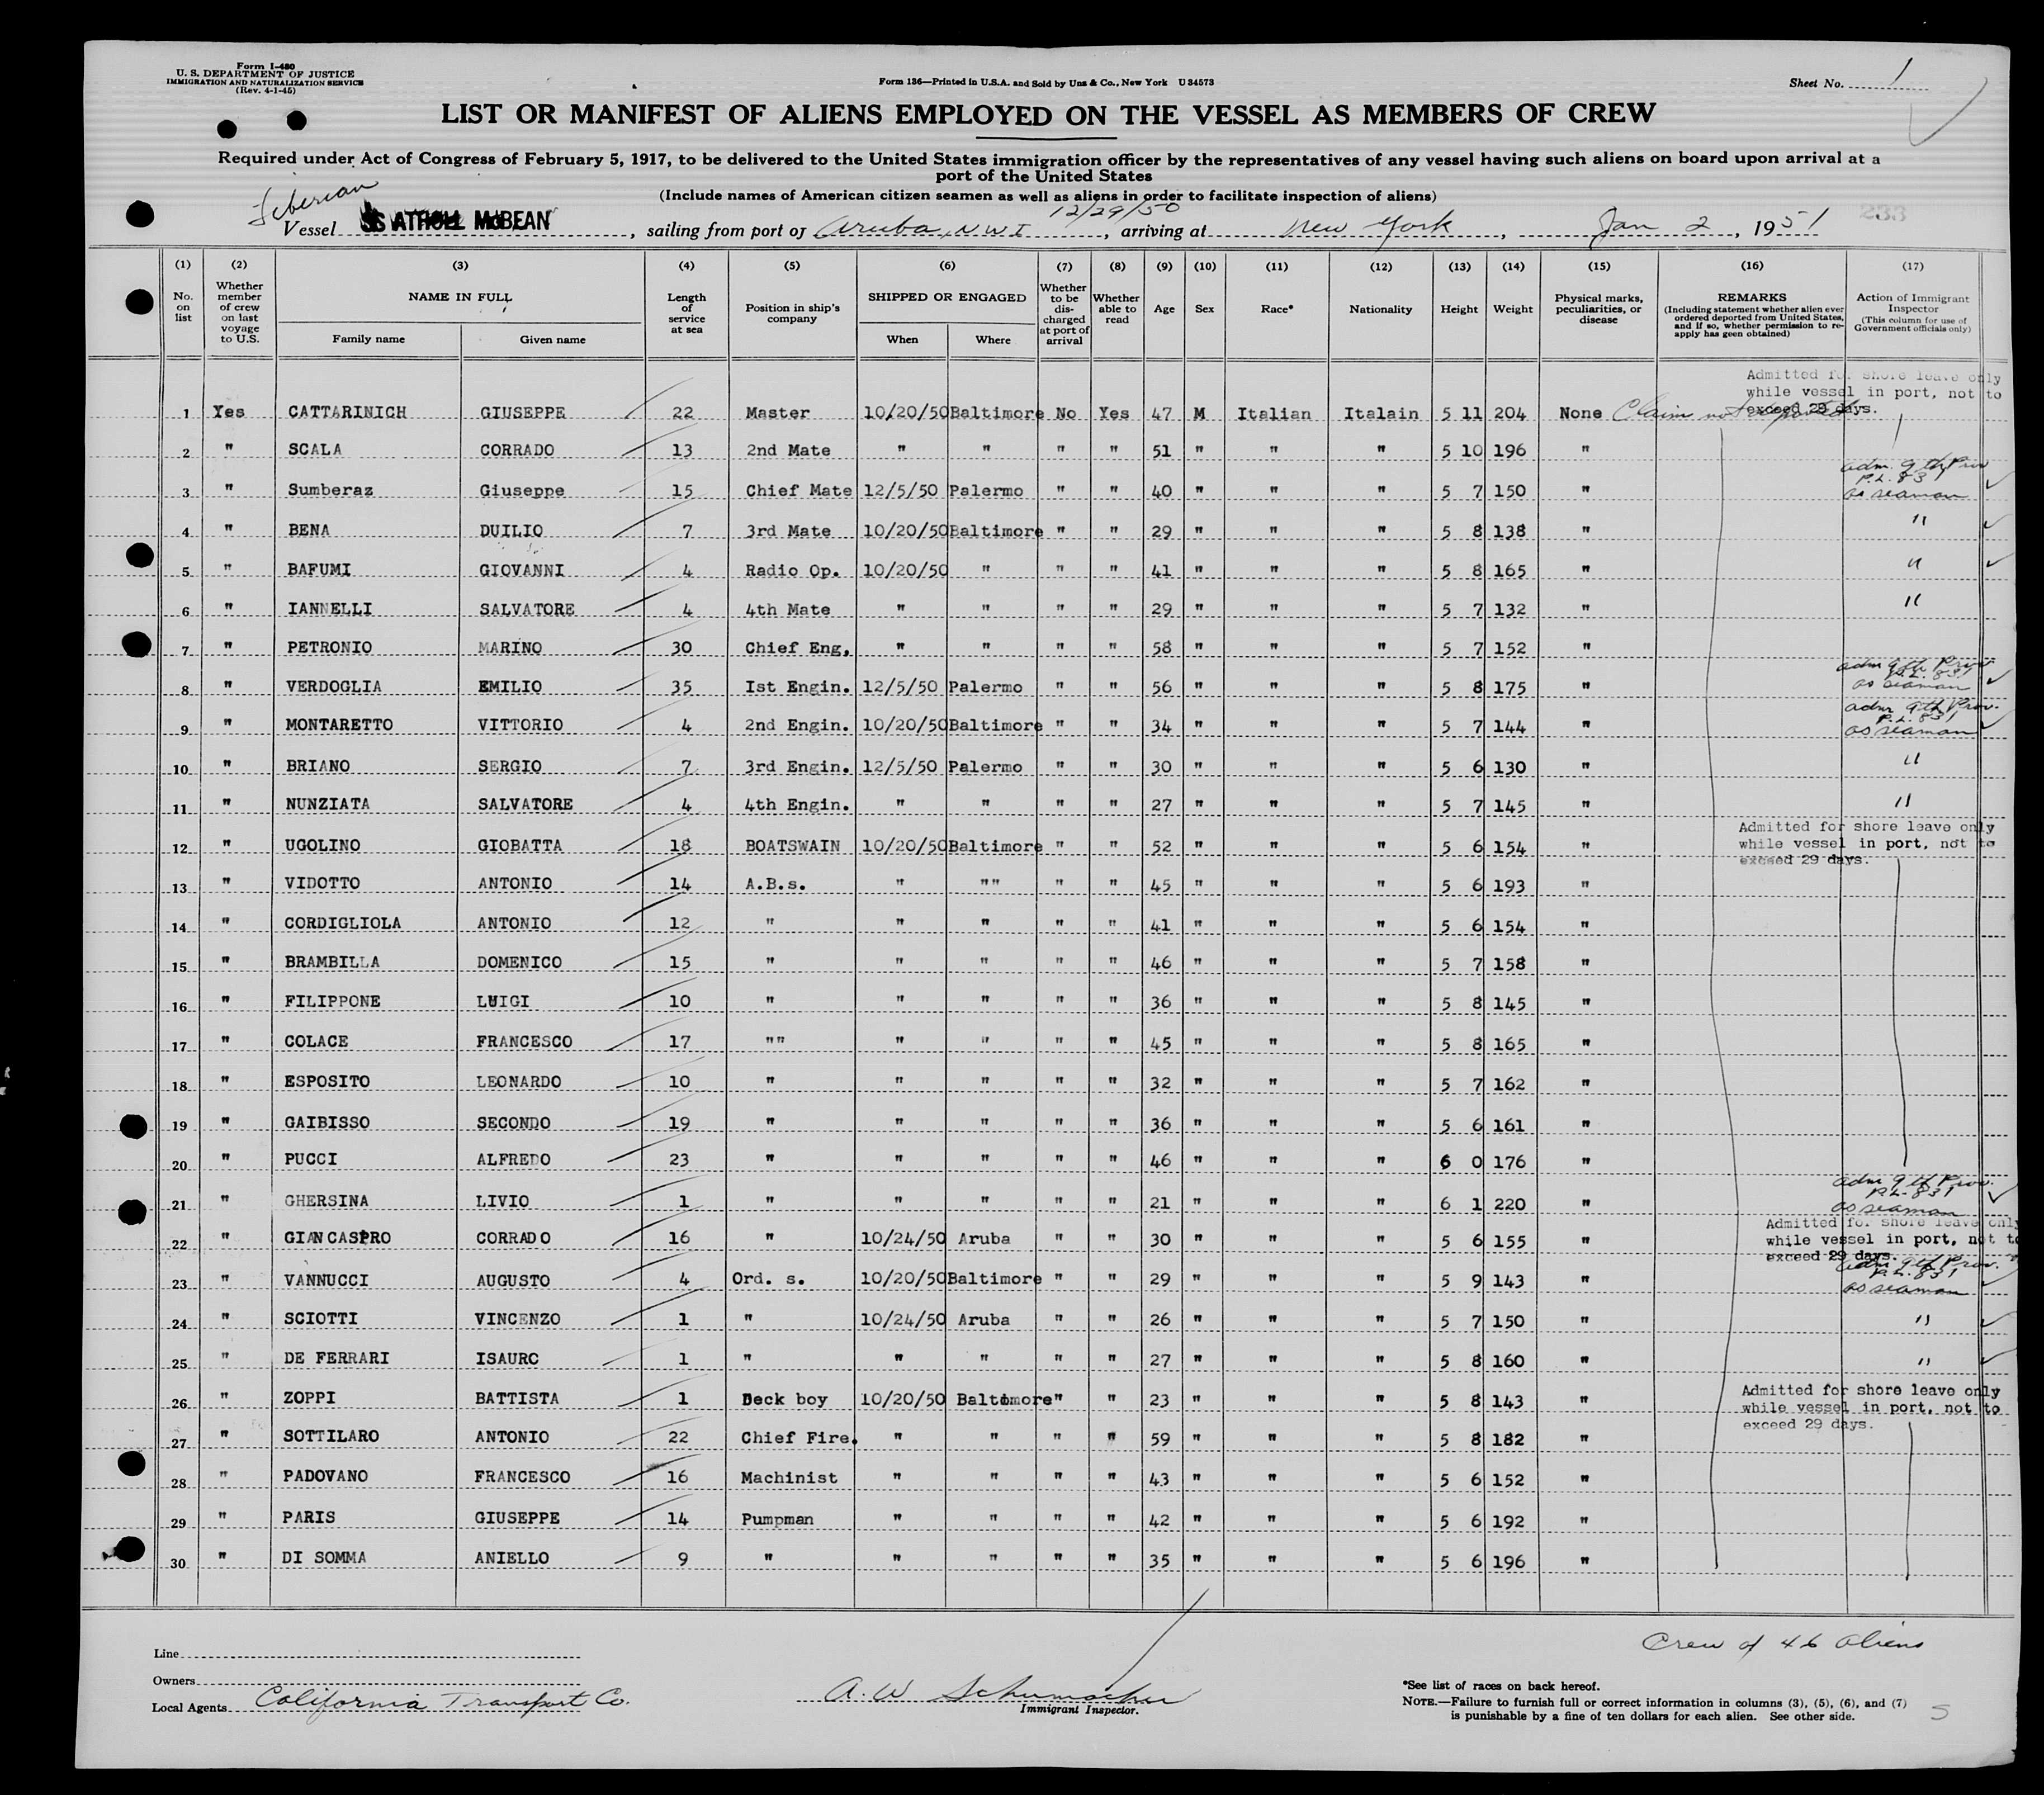 Form I-480
U. S. DEPARTMENT OF JUSTICE
IMMIGRATION AND NATURALIZATION SERVICE
(Rev. 4-1-45)
Form 136—Printed in U.S.A. and Sold by Unz & Co., New York U34573
Sheet No. 1
LIST OR MANIFEST OF ALIENS EMPLOYED ON THE VESSEL AS MEMBERS OF CREW
Required under Act of Congress of February 5, 1917, to be delivered to the United States immigration officer by the representatives of any vessel having such aliens on board upon arrival at a
port of the United States
(Include names of American citizen seamen as well as aliens in order to facilitate inspection of aliens)
Liberian
12/29/50
Vessel SS ATHOLL McBEAN, sailing from port of Aruba, N W I, arriving at New York, Jan 2, 1951
233
(1) No. on list
(2) Whether member of crew on last voyage to U.S.
(3) NAME IN FULL Family name Given name
(4) Length of service at sea
(5) Position in ship's company
(6) SHIPPED OR ENGAGED When Where
(7) Whether to be discharged at port of arrival
(8) Whether able to read
(9) Age
(10) Sex
(11) Race*
(12) Nationality
(13) Height
(14) Weight
(15) Physical marks, peculiarities, or disease
(16) REMARKS (Including statement whether alien ever ordered deported from United States, and if so, whether permission to re-apply has geen obtained)
(17) Action of Immigrant Inspector (This column for use of Government officials only)
Admitted for shore leave only
while vessel in port, not to
exceed 29 days.
1 Yes CATTARINICH GIUSEPPE 22 Master 10/20/50 Baltimore No Yes 47 M Italian Italain 5 11 204 None Claim not
2 " SCALA CORRADO 13 2nd Mate " " " " 51 " " " 5 10 196 "
3 " Sumberaz Giuseppe 15 Chief Mate 12/5/50 Palermo " " 40 " " " 5 7 150 " adm. 9th Prov P.L. 831 as seaman
4 " BENA DUILIO 7 3rd Mate 10/20/50 Baltimore " " 29 " " " 5 8 138 " "
5 " BAFUMI GIOVANNI 4 Radio Op. 10/20/50 " " " 41 " " " 5 8 165 " "
6 " IANNELLI SALVATORE 4 4th Mate " " " " 29 " " " 5 7 132 " "
7 " PETRONIO MARINO 30 Chief Eng. " " " " 58 " " " 5 7 152 "
8 " VERDOGLIA EMILIO 35 Ist Engin. 12/5/50 Palermo " " 56 " " " 5 8 175 " adm 9th Prov. P.L. 831 as seaman
9 " MONTARETTO VITTORIO 4 2nd Engin. 10/20/50 Baltimore " " 34 " " " 5 7 144 " adm 9th Prov. P.L. 831 as seaman
10 " BRIANO SERGIO 7 3rd Engin. 12/5/50 Palermo " " 30 " " " 5 6 130 " "
11 " NUNZIATA SALVATORE 4 4th Engin. " " " " 27 " " " 5 7 145 " "
12 " UGOLINO GIOBATTA 18 BOATSWAIN 10/20/50 Baltimore " " 52 " " " 5 6 154 " Admitted for shore leave only while vessel in port, not to exceed 29 days.
13 " VIDOTTO ANTONIO 14 A.B.s. " "" " " 45 " " " 5 6 193 "
14 " CORDIGLIOLA ANTONIO 12 " " " " " 41 " " " 5 6 154 "
15 " BRAMBILLA DOMENICO 15 " " " " " 46 " " " 5 7 158 "
16 " FILIPPONE LUIGI 10 " " " " " 36 " " " 5 8 145 "
17 " COLACE FRANCESCO 17 "" " " " " 45 " " " 5 8 165 "
18 " ESPOSITO LEONARDO 10 " " " " " 32 " " " 5 7 162 "
19 " GAIBISSO SECONDO 19 " " " " " 36 " " " 5 6 161 "
20 " PUCCI ALFREDO 23 " " " " " 46 " " " 6 0 176 "
21 " GHERSINA LIVIO 1 " " " " " 21 " " " 6 1 220 " adm 9th Prov. P.L. 831 as seaman
22 " GIANCASPRO CORRADO 16 " 10/24/50 Aruba " " 30 " " " 5 6 155 " Admitted for shore leave only while vessel in port, not to exceed 29 days.
23 " VANNUCCI AUGUSTO 4 Ord. s. 10/20/50 Baltimore " " 29 " " " 5 9 143 " adm 9th Prov. P.L. 831 as seaman
24 " SCIOTTI VINCENZO 1 " 10/24/50 Aruba " " 26 " " " 5 7 150 " "
25 " DE FERRARI ISAURO 1 " " " " " 27 " " " 5 8 160 " "
26 " ZOPPI BATTISTA 1 Deck boy 10/20/50 Baltimore " " 23 " " " 5 8 143 " Admitted for shore leave only while vessel in port, not to exceed 29 days.
27 " SOTTILARO ANTONIO 22 Chief Fire. " " " " 59 " " " 5 8 182 "
28 " PADOVANO FRANCESCO 16 Machinist " " " " 43 " " " 5 6 152 "
29 " PARIS GIUSEPPE 14 Pumpman " " " " 42 " " " 5 6 192 "
30 " DI SOMMA ANIELLO 9 " " " " " 35 " " " 5 6 196 "
Crew of 46 Aliens
Line
Owners
Local Agents California Transport Co.
A. W Schumacher
Immigrant Inspector.
*See list of races on back hereof.
NOTE.—Failure to furnish full or correct information in columns (3), (5), (6), and (7)
is punishable by a fine of ten dollars for each alien. See other side.